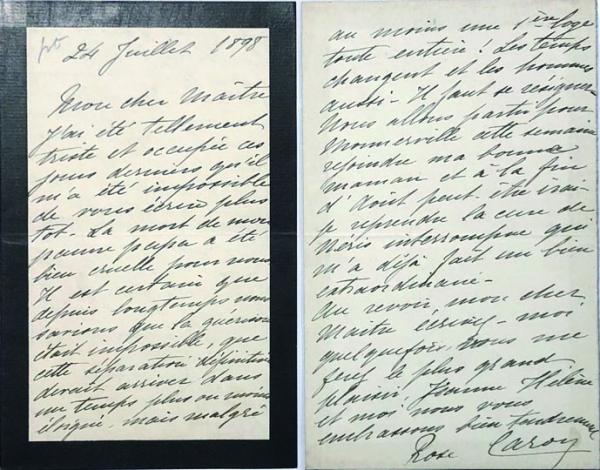 24 Juillet 1898
Mon cher Maître
J'ai été tellement
triste et occupée ces
jours derniers qu'il
m'a été impossible
de vous écrire plus
tôt. La mort de mon
pauvre papa a été
bien cruelle pour nous
Il est certain que
depuis longtemps nous
savions que la guérison
était impossible, que
cette séparation définitive
devait arriver dans
un temps plus ou moins
éloigné, mais malgré
au moins une 1ère loge
toute entière! Les temps
changent et les hommes
aussi - Il faut se résigner
Nous allons partir pour
Monnerville cette semaine
rejoindre ma bonne
maman et à la fin
d'Août peut-être irai-
je reprendre la cure de
Néris interrompue qui
m'a déjà fait un bien
extraordinaire -
Au revoir, mon cher
Maître écrivez-moi
quelquefois vous me
ferez le plus grand
plaisir. Jeanne Hélène
et moi nous vous
embrassons bien tendrement
Rose Caron